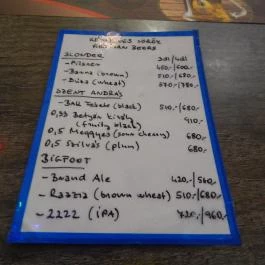 KÉZMŰVES SÖRÖK
ARTISAN BEERS
BLONDER 3dl/4dl
- Pilsner 450,-/600,-
- Barna (brown) 510,-/680,-
- Búza (wheat) 570,-/780,-
SZENT ANDRÁS
- BAK Fekete (black) 510,-/680,-
0,33 Betyár Király 910,-
(fruity black)
0,5 Meggyes (sour cherry) 680,-
0,5 Szilvás (plum) 680,-
BIGFOOT
- Brand Ale 420,-/560,-
- Razzia (brown wheat) 510,/680,-
- 2222 (IPA) 720,-/960,-